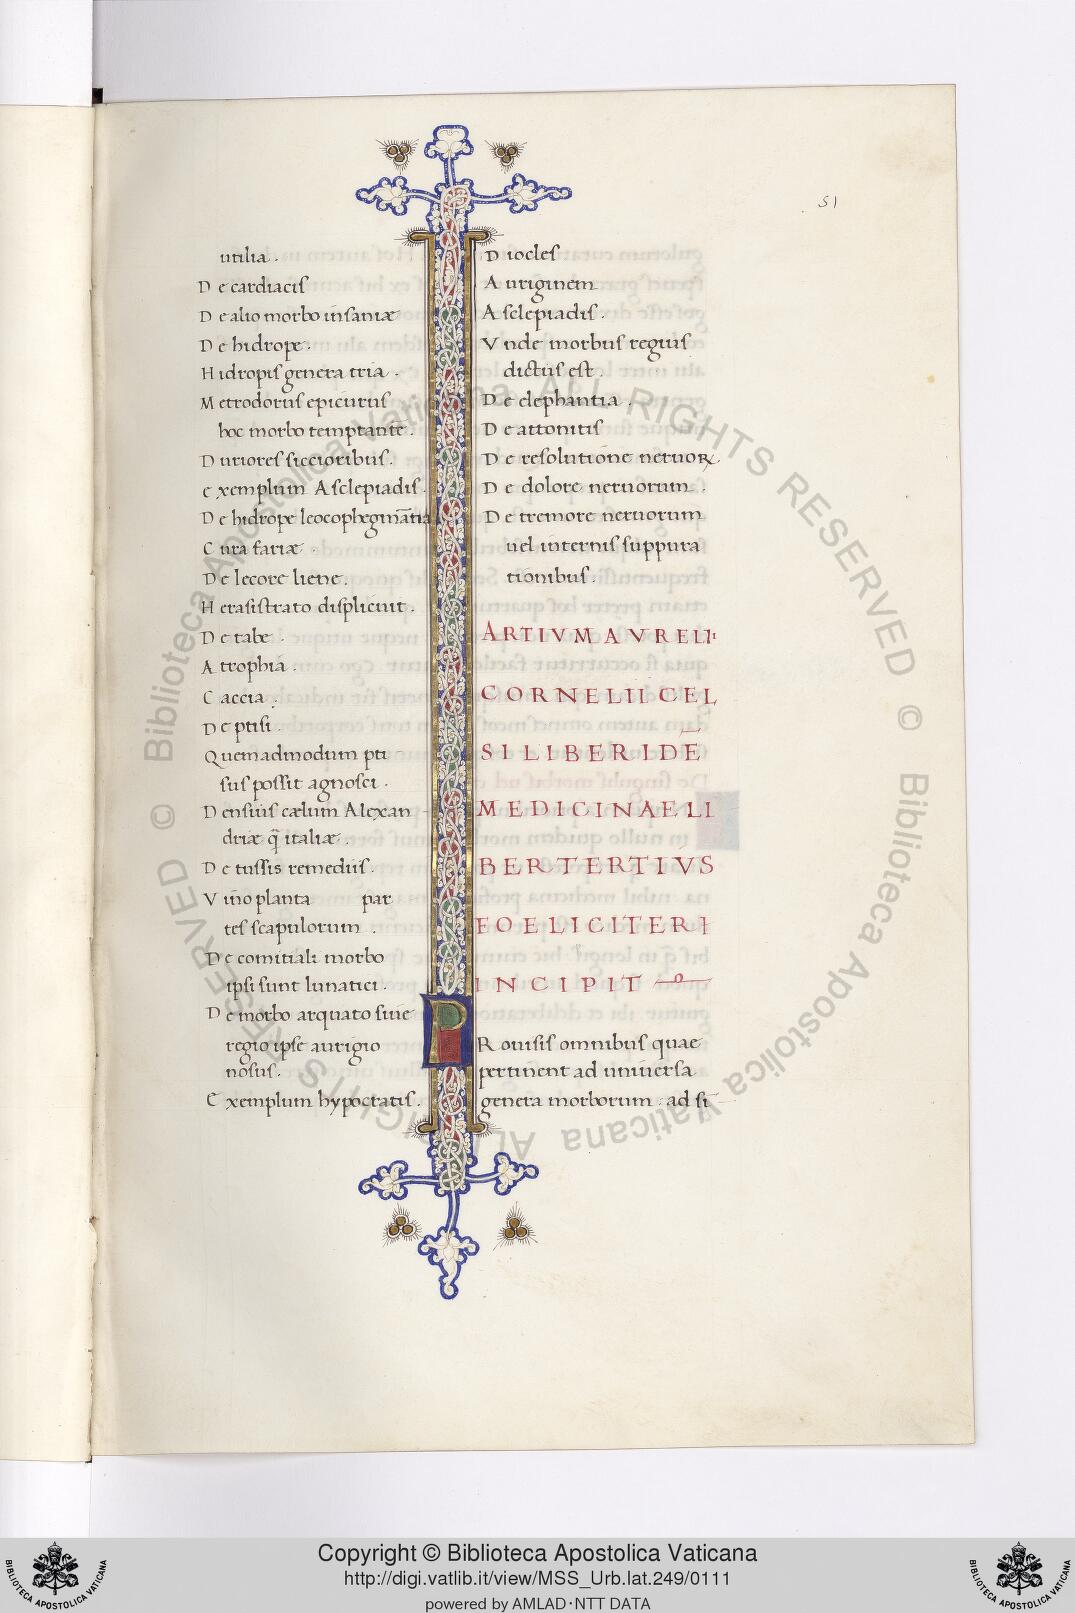 51
utilia.
De cardiacis
De alio morbo insaniæ
De hidrope.
Hidropis genera tria.
Metrodorus epicurus
hoc morbo temptante.
Duriores siccioribus.
exemplum Asclepiadis.
De hidrope leocophegmãtia
Cura tariæ.
De Iecore liene.
Herasistrato displicuit.
De tabe.
Atrophia.
Caccia.
De ptisi.
Quemadmodum pti
sus possit agnosci.
Densius cælum Alexan
driæ q̃ italiæ.
De tussis remediis.
Vino planta par
tes scapulorum.
De comitiali morbo
ipsi sunt lunatici.
De morbo arquato siue
regio ipse aurigio
nosus.
Exemplum hypocratis.
Diocles
Auriginem
Asclepiadis.
Vnde morbus regius
dictus est.
De elephantia.
De attonitis
De resolutione neruoꝝ.
De dolore neruorum.
De tremore neruorum
uel internis suppura
tionibus.
ARTIVM AVRELII
CORNELII CEL
SI LIBER IDẼ
MEDICINAE LI
BER TERTIVS
FOELICITER I
INCIPIT
PRouisis omnibus quae
pertinent ad uniuersa
genera morborum: ad si
Copyright © Biblioteca Apostolica Vaticana
http://digi.vatlib.it/view/MSS_Urb.lat.249/0111
powered by AMLAD·NTT DATA
BIBLIOTECA APOSTOLICA VATICANA
BIBLIOTECA APOSTOLICA VATICANA
© Biblioteca Apostolica Vaticana ALL RIGHTS RESERVED
© Biblioteca Apostolica Vaticana ALL RIGHTS RESERVED